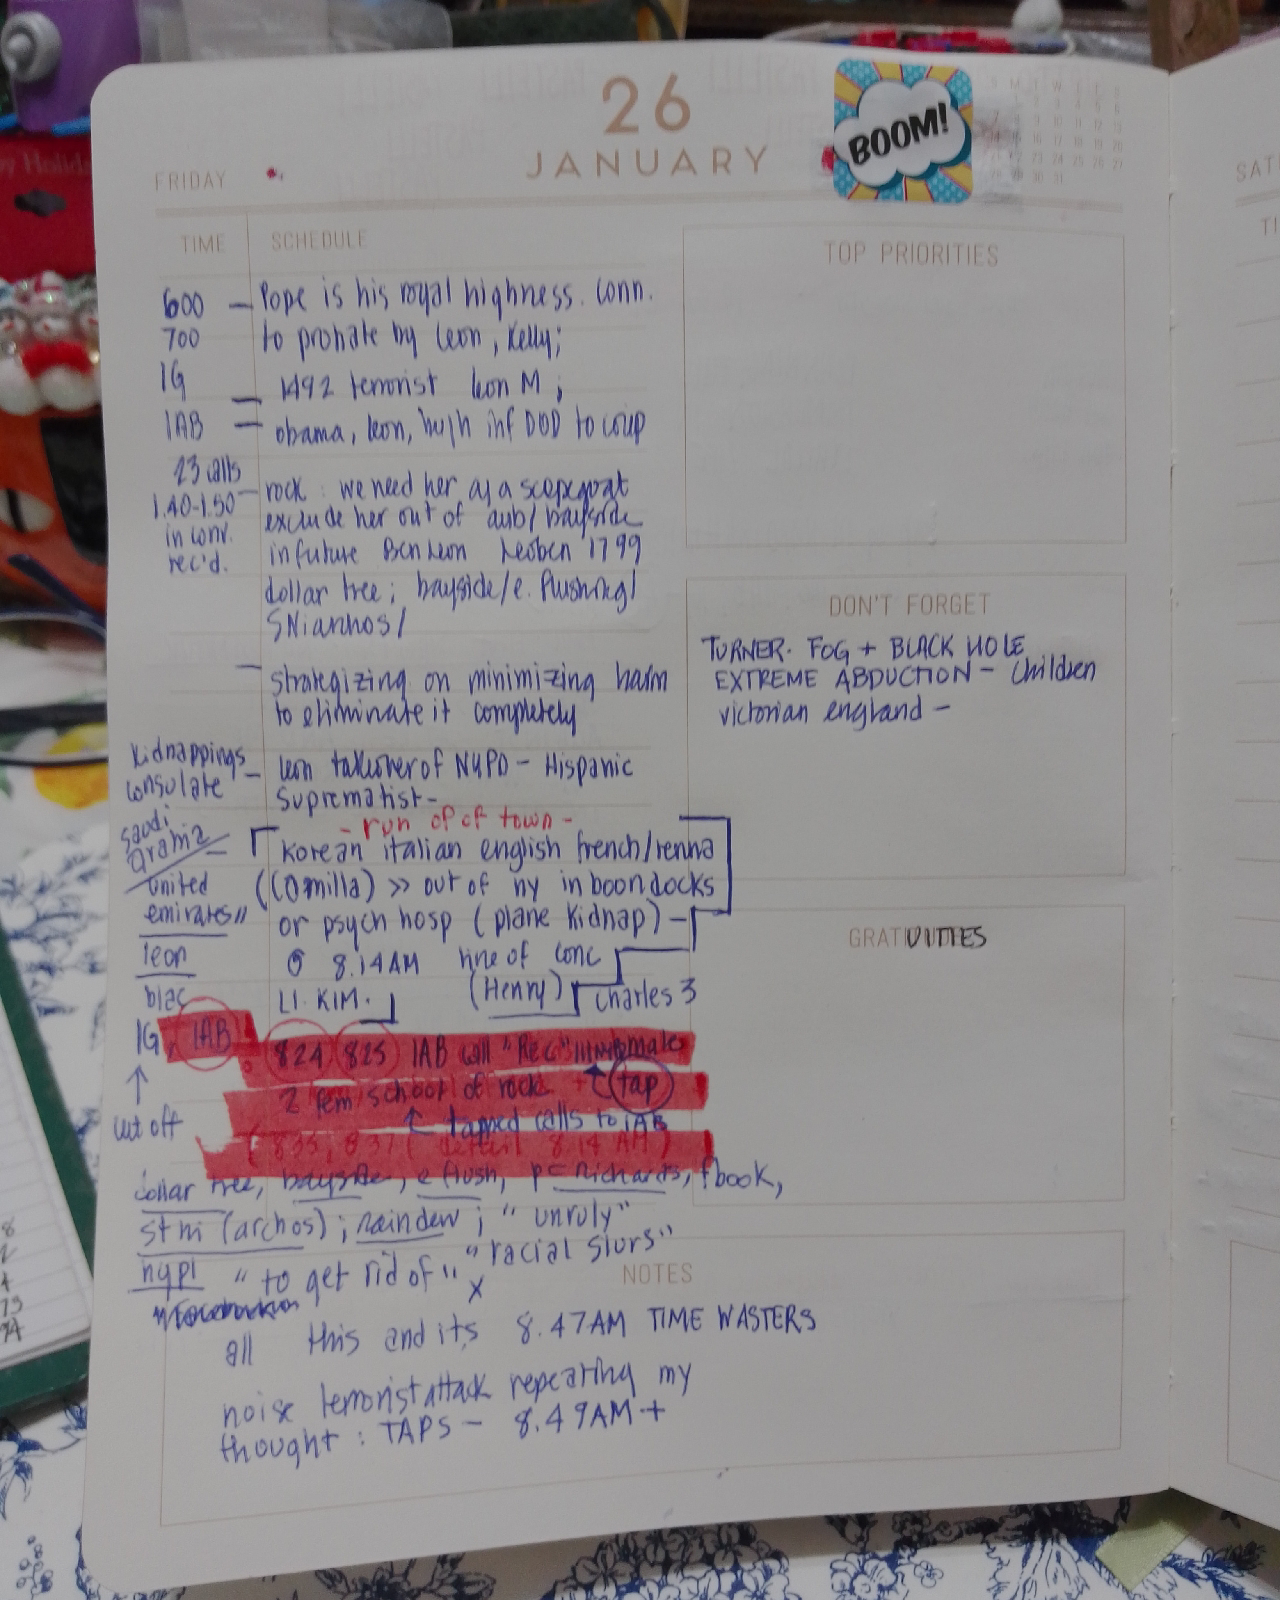 26
JANUARY
BOOM!
FRIDAY
SAT
TIME
SCHEDULE
TOP PRIORITIES
600 — Pope is his royal highness. conn.
700 to probate by leon, Kelly;
IG — 1492 terrorist leon M;
IAB — obama, leon, hugh inf DOD to coup
23 calls
1.40-1.50 — rock: we need her as a scapegoat
in conv. exclude her out of aub/bayside
rec'd. in future Ben Leon Leoben 1799
dollar tree; bayside/e. flushing/
— strategizing on minimizing harm
to eliminate it completely
DON'T FORGET
TURNER. FOG + BLACK HOLE
EXTREME ABDUCTION — Children
victorian england —
Kidnappings
consulate — leon takeover of NYPD — Hispanic
suprematist-
- run of of town -
saudi
arabia — korean italian english french/renna
united ((Omilla) >> out of ny in boondocks
emirates" or psych hosp (plane kidnap) —
leon @ 8.14AM line of conc
blac LI. KIM. (Henry) Charles 3
GRATUITIES
IG, IAB 824 825 IAB call "Rec"
2 fem school of rock + tap
cut off tapped calls to IAB
(835, 837 ( 8.14 AM)
dollar tree, bayside, e flush, pc richards, fbook,
stm (archos); raindew; "unruly"
nypl "to get rid of" "racial slurs"
x
NOTES
all this and its 8.47AM TIME WASTERS
noise terrorist attack repeating my
thought: TAPS — 8.49AM +